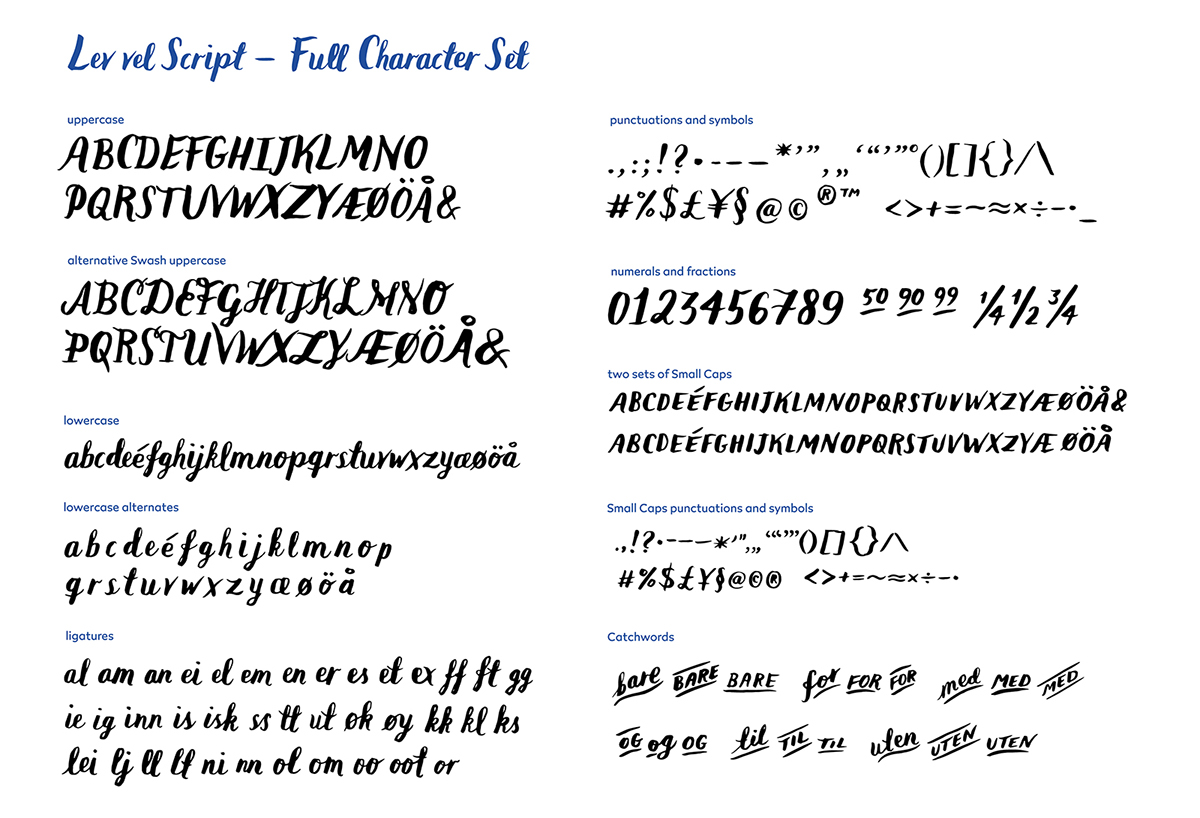 Lev vel Script – Full Character Set
uppercase
ABCDEFGHIJKLMNO
PQRSTUVWXZYÆØÖÅ&
alternative Swash uppercase
ABCDEFGHIJKLMNO
PQRSTUVWXZYÆØÖÅ&
lowercase
abcdeéfghijklmnopqrstuvwxzyæøöå
lowercase alternates
abcdeéfghijklmnop
qrstuvwxzyæøöå
ligatures
al am an ei el em en er es et ex ff ft gg
ie ig inn is isk ss tt ut øk øy kk kl ks
lei lj ll lt ni nn ol om oo oot or
punctuations and symbols
.,:;!?•-–—*’” ‚„ ‘“’”°()[]{}/\
#%$£¥§@©®™ <>+=~≈×÷−·_
numerals and fractions
0123456789 50 90 99 ¼ ½ ¾
two sets of Small Caps
ABCDEÉFGHIJKLMNOPQRSTUVWXZYÆØÖÅ&
ABCDEÉFGHIJKLMNOPQRSTUVWXZYÆØÖÅ
Small Caps punctuations and symbols
.,!?•-–—*'"‚„‘“’”()[]{}/\
#%$£¥§@©® <>+=~≈×÷−·
Catchwords
bare BARE BARE for FOR FOR med MED MED
OG og OG til TIL TIL uten UTEN UTEN